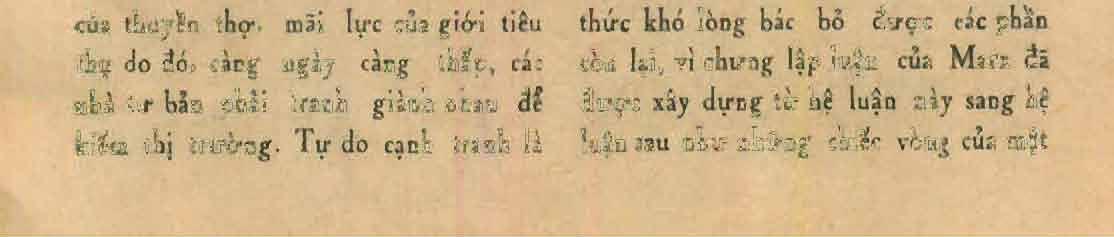 của thuyền thợ. mãi lực của giới tiêu
thụ do đó, càng ngày càng thấp, các
nhà tư bản phải tranh giành nhau để
kiếm thị trường. Tự do cạnh tranh là
thức khó lòng bác bỏ được các phần
còn lại, vì chưng lập luận của Marx đã
được xây dựng từ hệ luận này sang hệ
luận sau như những chiếc vòng của một